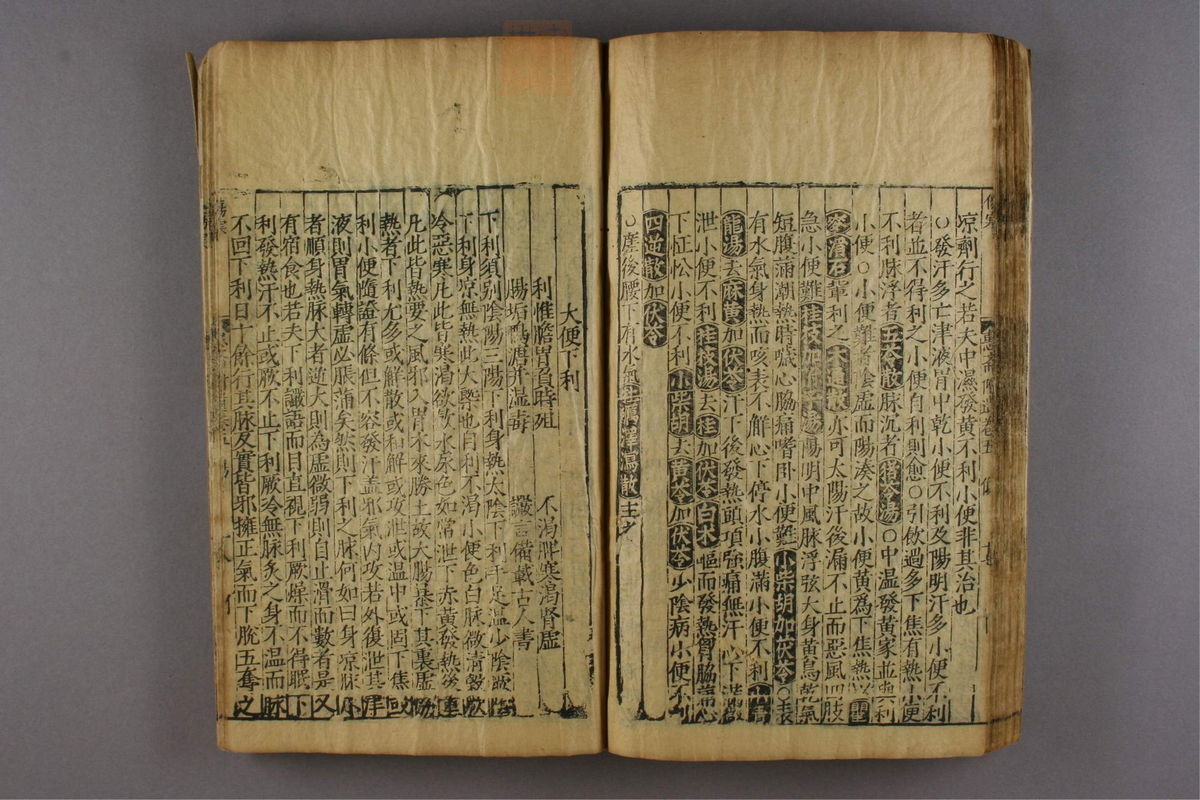 凉劑行之若夫中濕發黃不利小便非其治也
○發汗多亡津液胃中乾小便不利及陽明汗多小便不利
者並不得利之小便自利則愈○引飲過多下焦有熱小便
不利脉浮者五苓散脉沉者猪苓湯○中温發黃家並與利
小便○小便難者陰虛而陽湊之故小便黃爲下焦熱以
滑石軰利之亦可太陽汗後漏不止而惡風四肢
急小便難桂枝加附子湯陽明中風脉浮弦大身黃鳥乾氣
短腹滿潮熱時噦心脇痛嗜卧小便難小柴胡加茯苓○表
有水氣身熱而咳表不觧心下停水小腹滿小便不利小青
龍湯去麻黃加茯苓汗下後發熱頭項強痛無汗心下滿微
泄小便不利桂枝湯去桂加茯苓白朮嘔而發熱胷脇痛心
下怔忪小便不利小柴胡去黃芩加茯苓少陰病小便不利
四逆散加茯苓
○瘥後腰下有水氣牡蠣澤瀉散主之
大便下利
利惟膽胃負時殂 不渴脾寒渴腎虛
腸垢鴨溏并温毒 讝言備載古人書
下利須別陰陽三陽下利身熱太陰下利手足温少陰厥
下利身凉無熱此大槩也自利不渴小便色白脉微清穀
冷惡寒凡此皆寒渴欲飲水尿色如常泄下赤黃發熱後重
凡此皆熱要之風邪入胃木來勝土故大腸暴下其裏虛恊
熱者下利尤多或觧散或和觧或攻泄或温中或固下焦或
利小便隨證有條但不容發汗盖邪氣内攻若外復泄其津
液則胃氣轉虛必脹滿矣然則下利之脉何如曰身凉脉小
者順身熱脉大者逆大則為虛微弱則自止滑而數者是
有宿食也若夫下利讝語而目直視下利厥燥而不得眠下
利發熱汗不止或厥不止下利厥冷無脉灸之身不温而脉
不回下利日十餘行其脉反實皆邪擁正氣而下脫五奪之